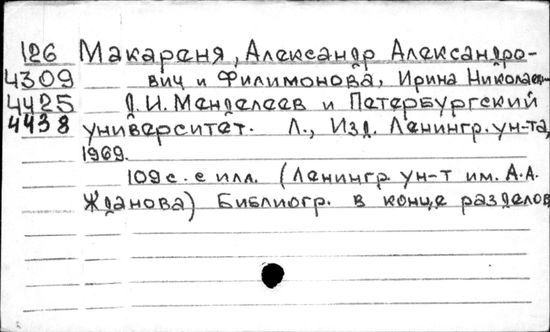 126 Макареня, Александр Александро-
4309 вич и Филимонова, Ирина Николаев-
4425 Д.И. Менделеев и Петербургский
4438 университет. Л., Изд. Ленингр. ун-та,
1969.
109 с. с илл. (Ленингр. ун-т им. А.А.
Жданова) Библиогр. в конце разделов